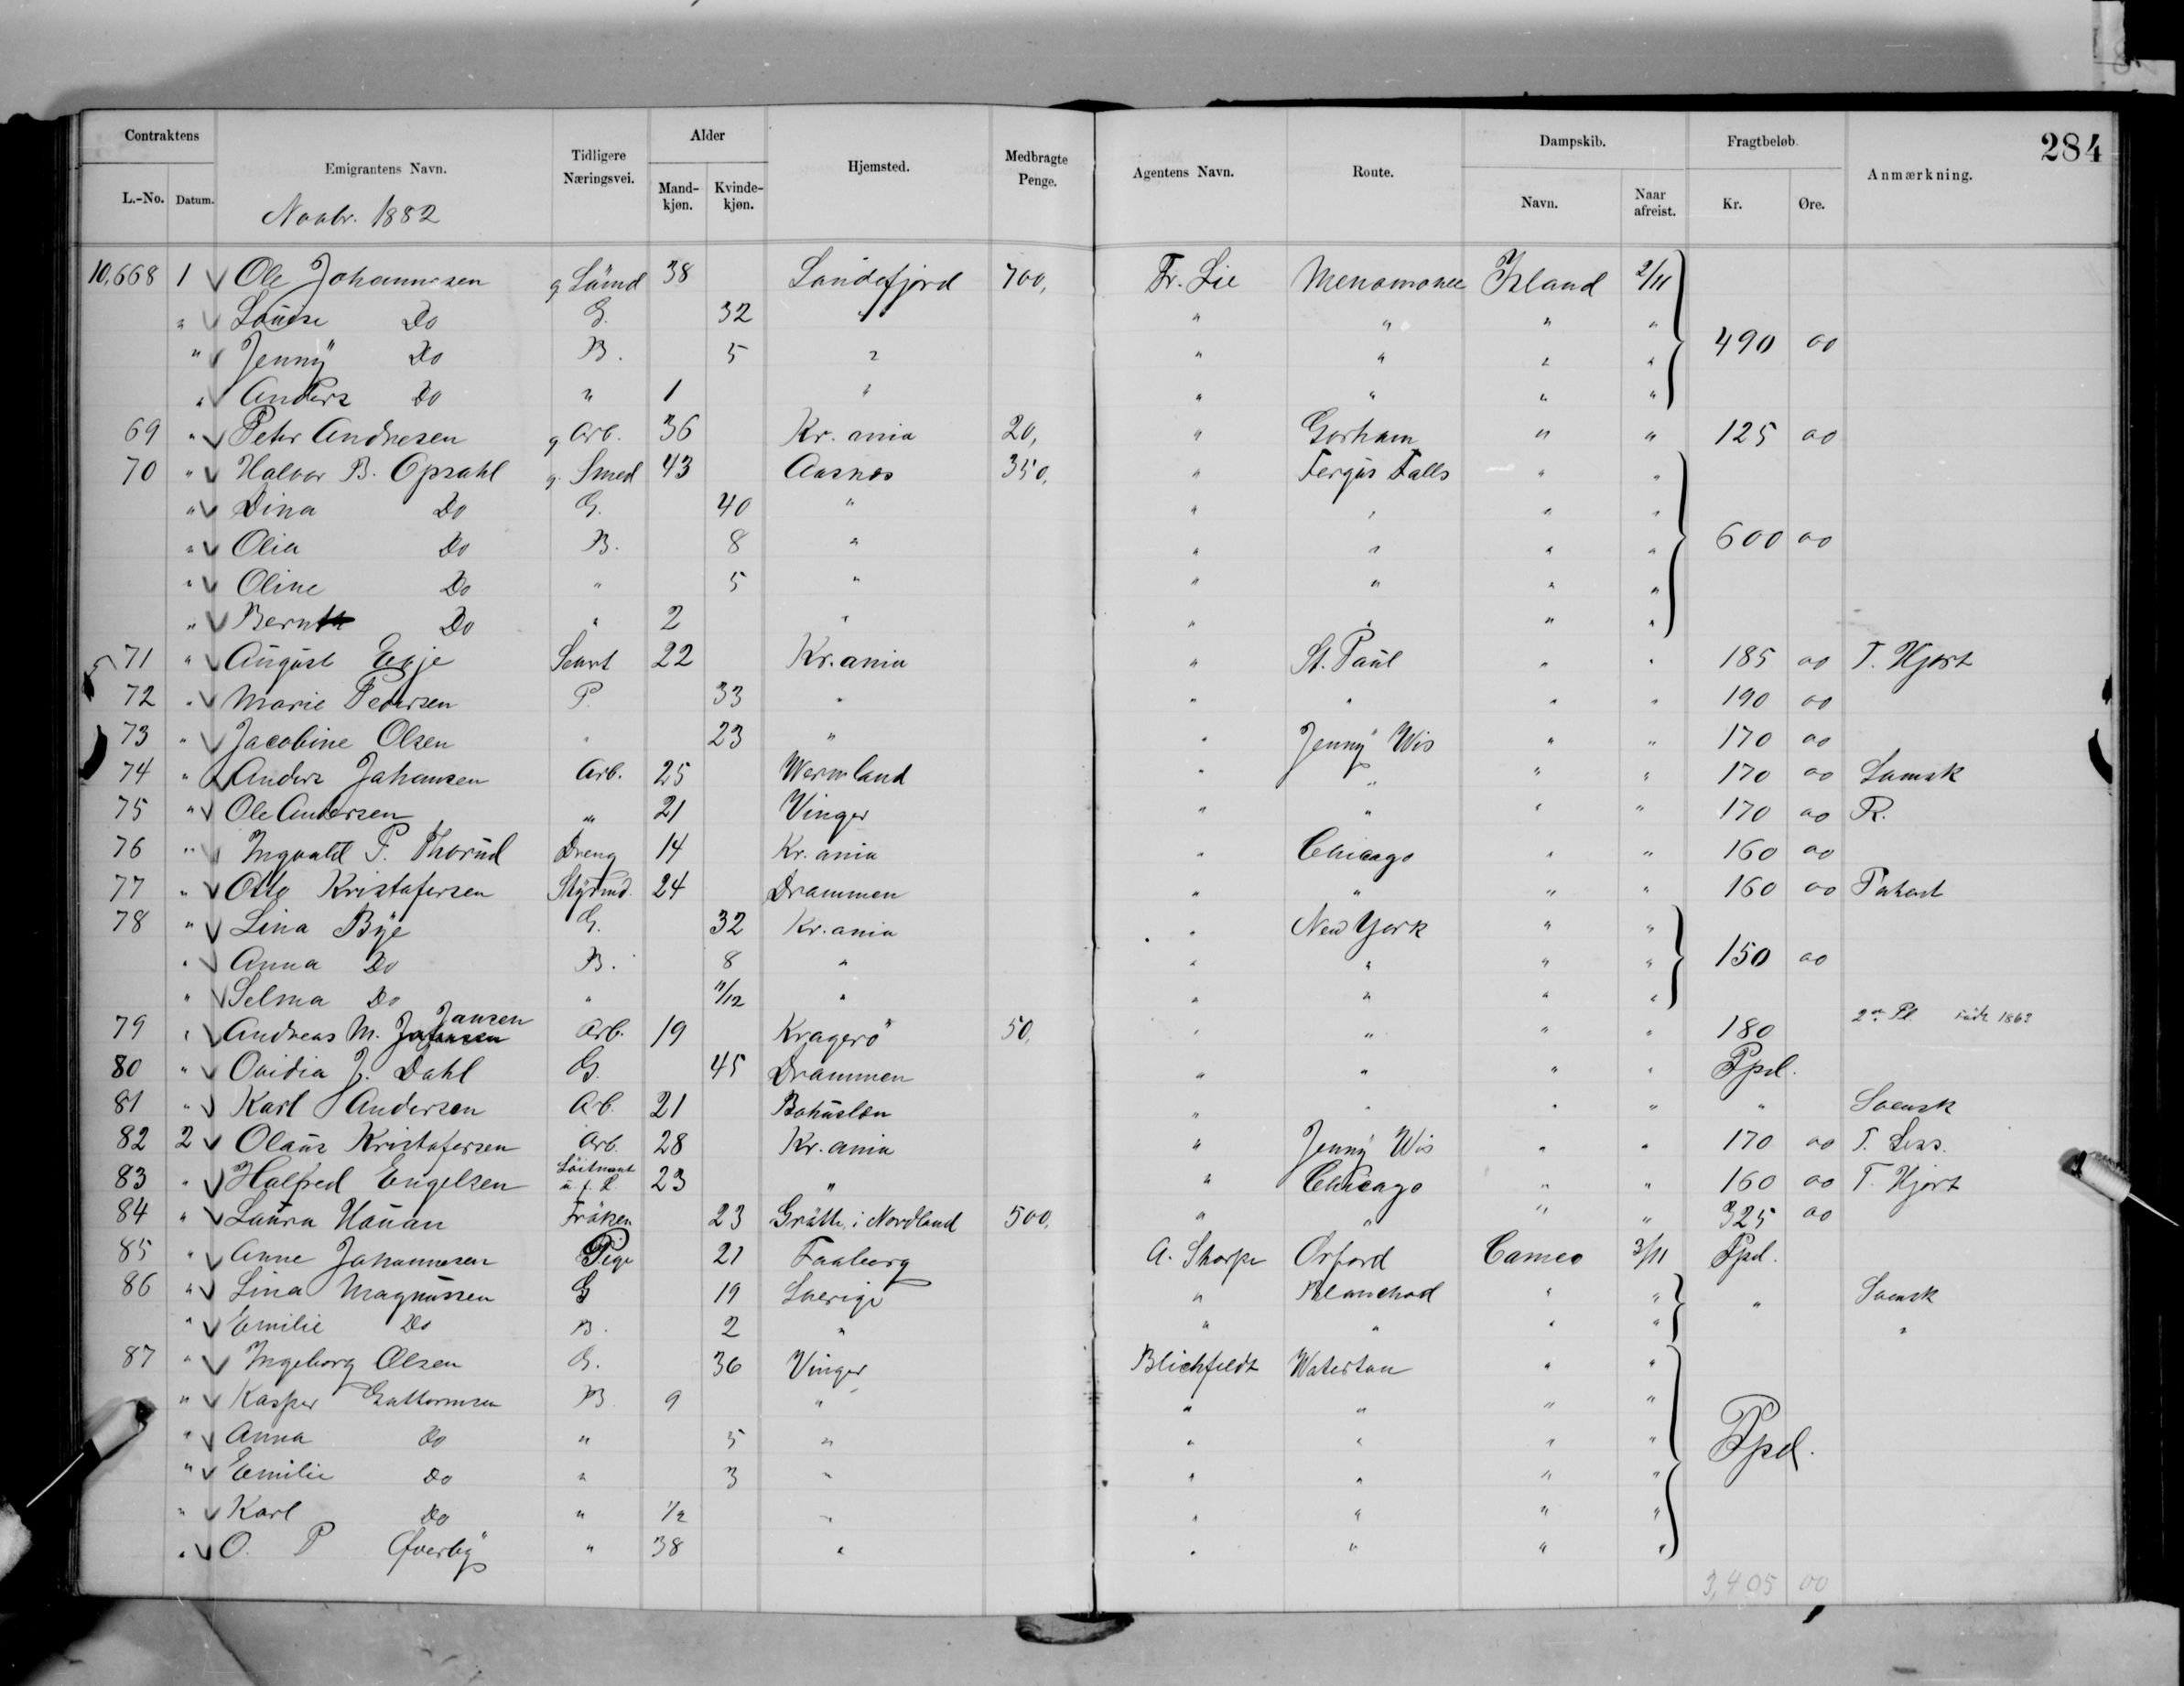 284
Contraktens | Emigrantens Navn. | Tidligere Næringsvei. | Alder | Hjemsted. | Medbragte Penge. | Agentens Navn. | Route. | Dampskib. | Fragtbeløb. | Anmærkning.
L.-No. | Datum. | Mandkjøn. | Kvindekjøn. | Navn. | Naar afreist. | Kr. | Øre.
Novbr. 1882
10,668 1 Ole Johannesen g Sömd 38 Sandefjord 700, Fr. Lie Menomonee Island 2/11
" Louise Do G. 32 " " " " "
" Jenny Do B. 5 " " " " " 490 00
" Anders Do " 1 " " " " "
69 " Peter Andresen g Arb. 36 Kr. ania 20, " Gorham " " 125 00
70 " Halvor B. Opsahl g. Smed 43 Aasnes 350, " Fergus Falls " "
" Dina Do G. 40 " " " " "
" Olia Do B. 8 " " " " " 600 00
" Oline Do " 5 " " " " "
" Bernt Do " 2 " " " " "
71 " August Egje 22 Kr. ania " St. Paul " " 185 00 T. Hjort
72 " Marie Pedersen P. 33 " " " " " 190 00
73 " Jacobine Olsen " 23 " " Jenny Wis " " 170 00
74 " Anders Johansen Arb. 25 Wermland " " " " 170 00 Svensk
75 " Ole Andersen " 21 Vinger " " " " 170 00 R.
76 " Ingvald P. Thorud Dreng 14 Kr. ania " Chicago " " 160 00
77 " Otto Kristofersen Styrmd. 24 Drammen " " " " 160 00 Patent
78 " Lina Bye G. 32 Kr. ania " New York " "
" Anna Do B. 8 " " " " " 150 00
" Selma Do " 11/12 " " " " "
79 " Andreas M. Jansen Arb. 19 Kragerö 50, " " " " 180 2den Pl. født 1863
80 " Ovidia J. Dahl G. 45 Drammen " " " " Ppd.
81 " Karl Andersen Arb. 21 Bohuslen " " " " " Svensk
82 2 Olaus Kristofersen Arb. 28 Kr. ania " Jenny Wis " " 170 00 T. Less.
83 " Halfred Engelsen Löitnant 23 " " Chicago " " 160 00 T. Hjort
84 " Laura Hauan Fröken 23 i Nordland 500, " " " " 325 00
85 " Anne Johannesen Pige 21 Faaberg A. Sharpe Orford Cameo 3/11 Ppd.
86 " Lina Magnussen G 19 Sverige " Blanchad " " " Svensk
" Emilie Do B. 2 " " " " " "
87 " Ingeborg Olsen G. 36 Vinger Blichfeldt Watertan " "
" Kasper Guttormsen B 9 " " " " "
" Anna Do " 5 " " " " " Ppd.
" Emilie Do " 3 " " " " "
" Karl Do " 1/2 " " " " "
" O. P Øverby " 38 " " " " "
3,405 00